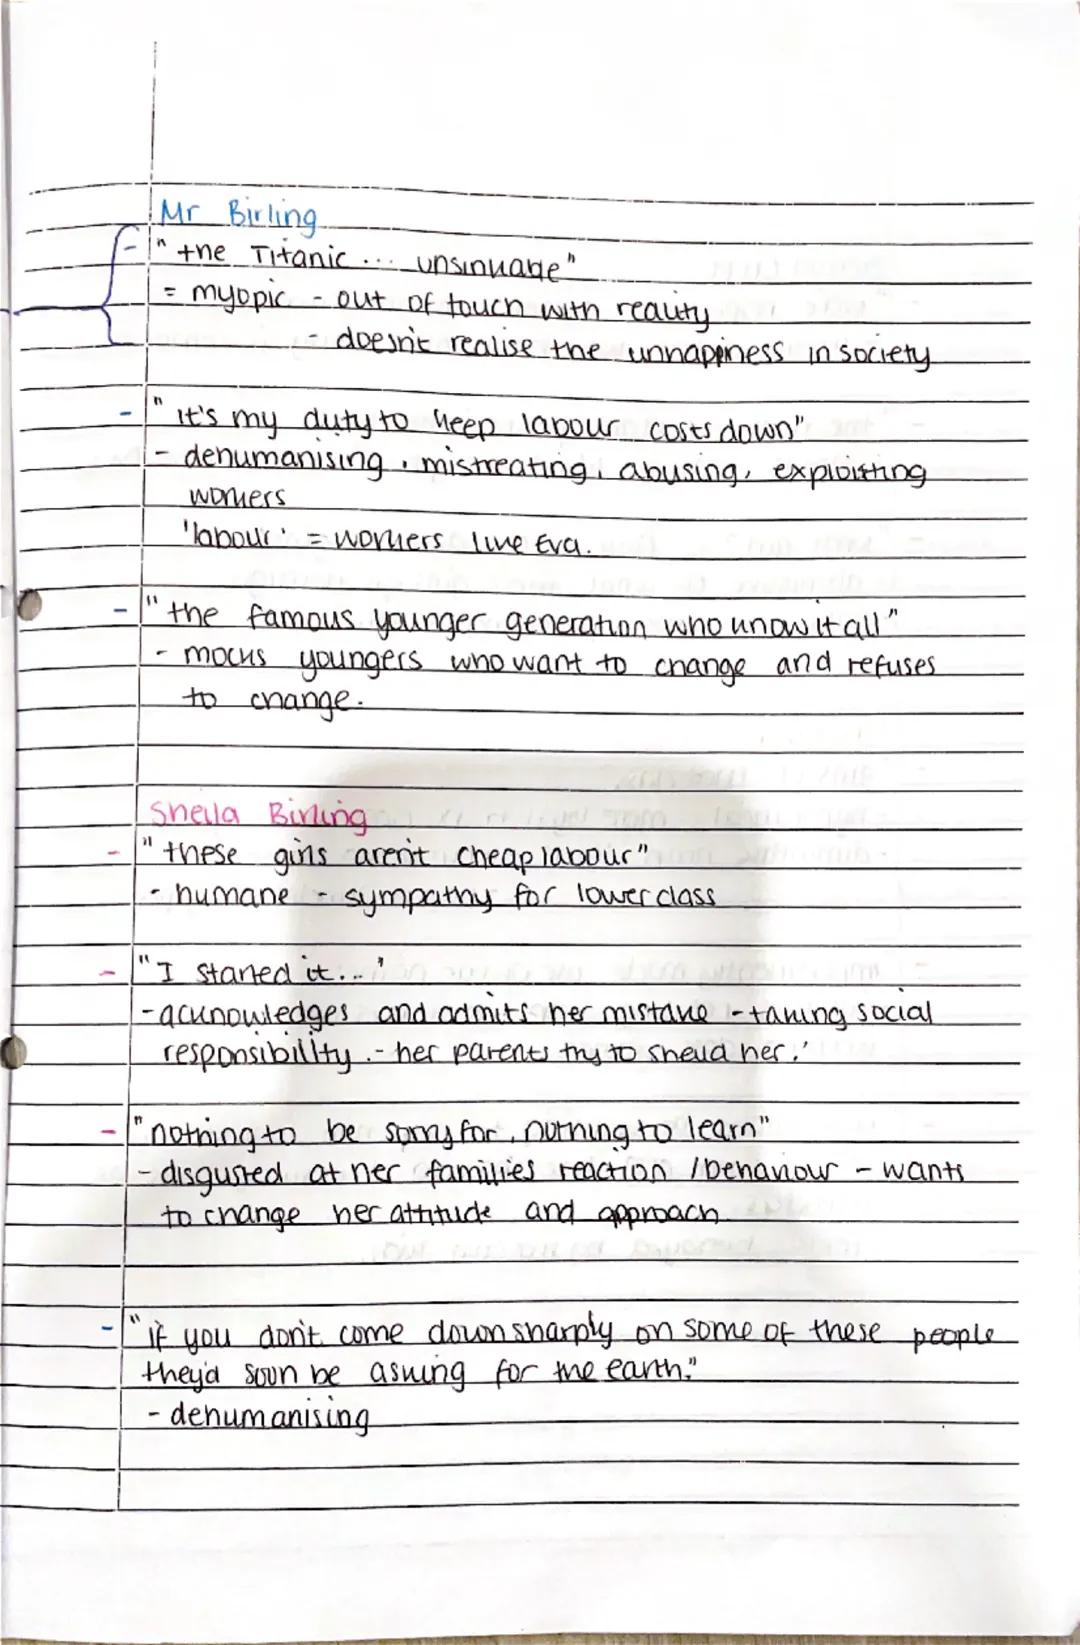 Mr Birling
- "the Titanic ... unsinkable"
= myopic - out of touch with reality
- doesn't realise the unhappiness in society
- "it's my duty to keep labour costs down"
- dehumanising, mistreating, abusing, exploiting
workers
'labour' = workers like Eva.
- "the famous younger generation who know it all"
- mocks youngers who want to change and refuses
to change.
Sheila Birling
- "these girls aren't cheap labour"
- humane - sympathy for lower class
- "I started it... '
- acknowledges and admits her mistake - taking social
responsibility. - her parents try to sheild her.'
- "nothing to be sorry for, nothing to learn"
- disgusted at her families reaction / behaviour - wants
to change her attitude and approach.
- "if you don't come down sharply on some of these people
they'd soon be asking for the earth."
- dehumanising